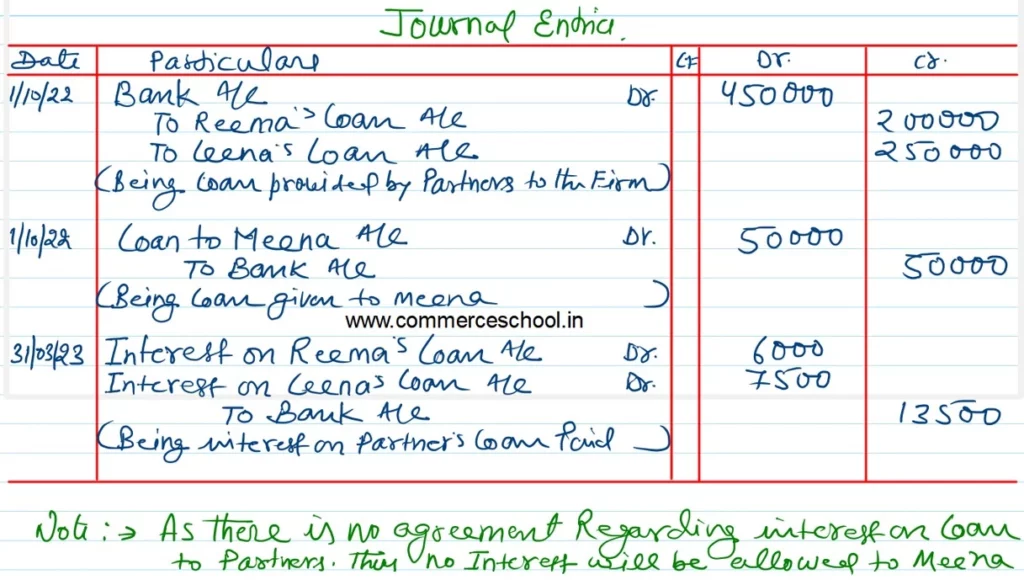 Journal Entries.
Date Particulars LF Dr. Cr.
1/10/22 Bank A/c Dr. 450000
To Reema's Loan A/c 200000
To Leena's Loan A/c 250000
(Being Loan provided by Partners to the Firm)
1/10/22 Loan to Meena A/c Dr. 50000
To Bank A/c 50000
(Being Loan given to Meena)
www.commerceschool.in
31/03/23 Interest on Reema's Loan A/c Dr. 6000
Interest on Leena's Loan A/c Dr. 7500
To Bank A/c 13500
(Being interest on Partner's Loan Paid)
Note :→ As there is no agreement Regarding interest on Loan
to Partners. Thus no Interest will be allowed to Meena